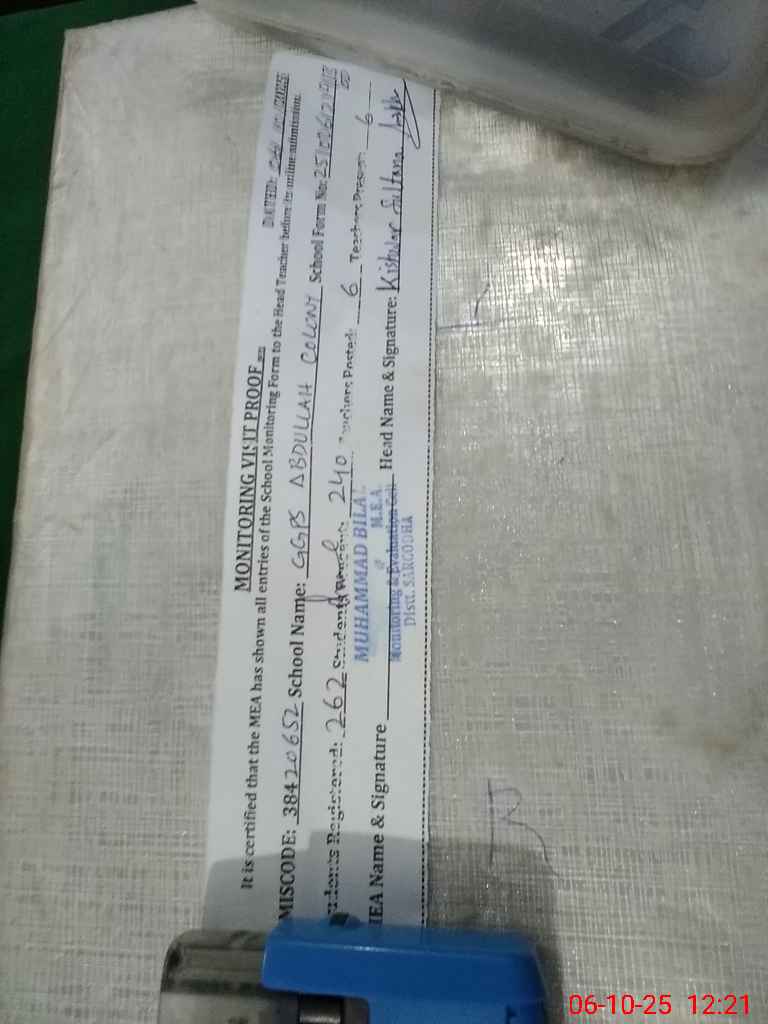 MONITORING VISIT PROOF
DATED:
It is certified that the MEA has shown all entries of the School Monitoring Form to the Head Teacher before its online submission.
MISCODE: 38420652 School Name: GGPS ABDULLAH COLONY School Form No:
Students Registered: 262 Students Present: 240 Teachers Posted: 6 Teachers Present: 6
MEA Name & Signature Head Name & Signature: Kishwar Sultana
MUHAMMAD BILAL
M.E.A
Monitoring & Evaluation Cell
Distt. SARGODHA
06-10-25 12:21